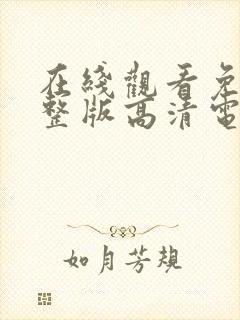 在綫觀看免
整版高清電
如月芳規